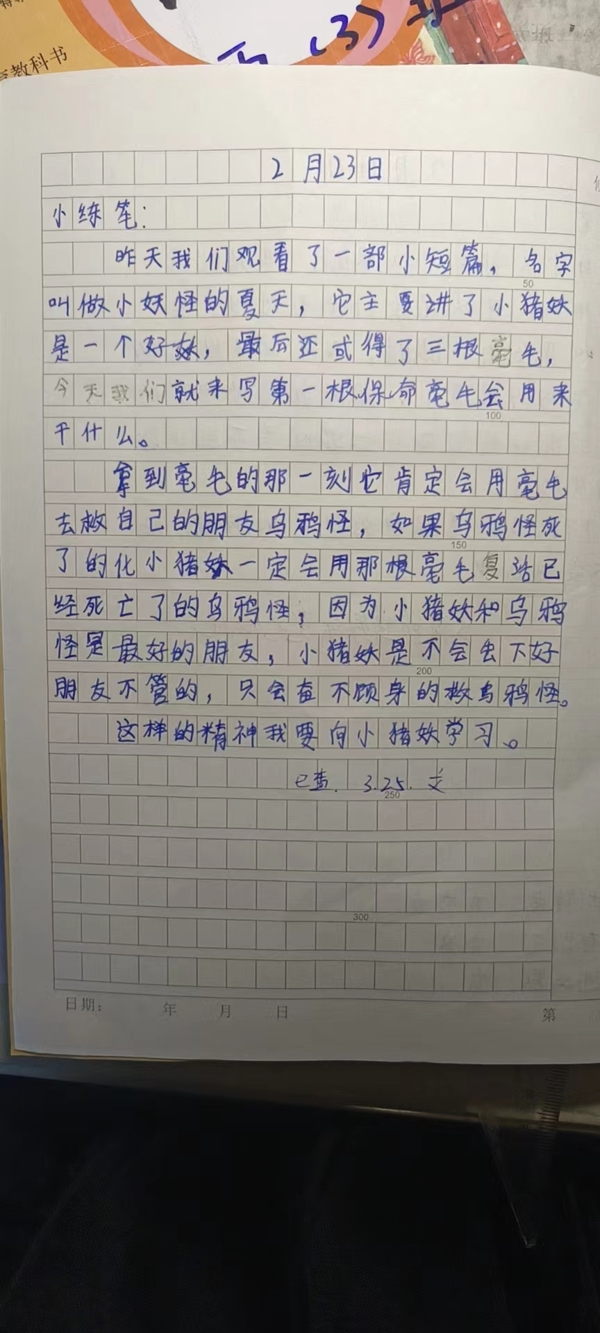 育教科书
(3)班
2月23日
小练笔：
昨天我们观看了一部小短篇，名字
50
叫做小妖怪的夏天，它主要讲了小猪妖
是一个好妖，最后还或得了三根毫毛，
今天我们就来写第一根保命毫毛会用来
100
干什么。
拿到毫毛的那一刻它肯定会用毫毛
去救自己的朋友乌鸦怪，如果乌鸦怪死
150
了的化小猪妖一定会用那根毫毛复活已
经死亡了的乌鸦怪，因为小猪妖和乌鸦
怪是最好的朋友，小猪妖是不会丢下好
200
朋友不管的，只会奋不顾身的救乌鸦怪。
这样的精神我要向小猪妖学习。
已查. 3.25. 文
250
300
日期： 年 月 日 第